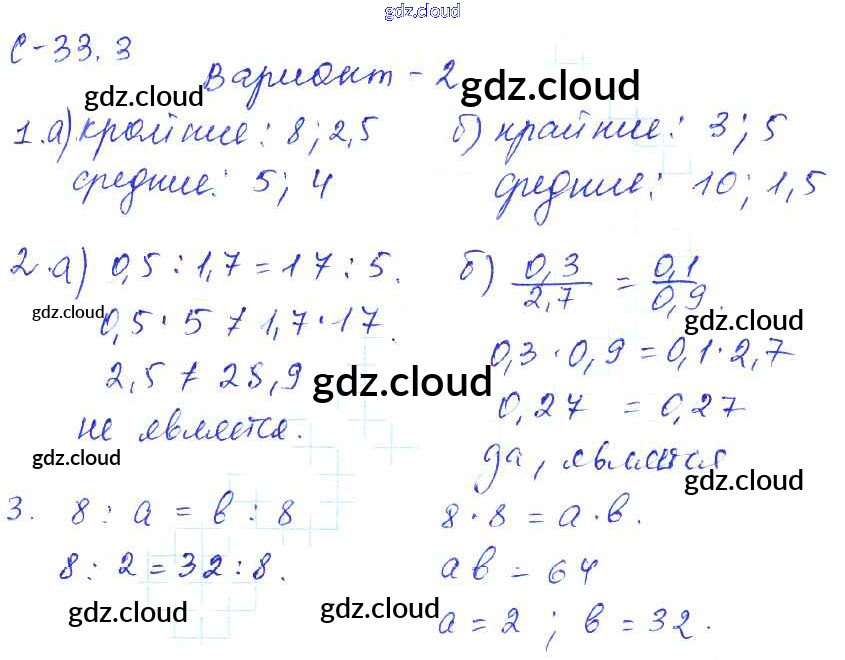 gdz.cloud
С-33.3
Вариант - 2
gdz.cloud
gdz.cloud
1. а) крайние: 8; 2,5
средние: 5; 4
б) крайние: 3; 5
средние: 10; 1,5
2. а) 0,5 : 1,7 = 17 : 5.
gdz.cloud
0,5 · 5 ≠ 1,7 · 17.
2,5 ≠ 28,9
gdz.cloud
не является.
gdz.cloud
б) 0,3/2,7 = 0,1/0,9.
gdz.cloud
0,3 · 0,9 = 0,1 · 2,7
0,27 = 0,27
да, является
gdz.cloud
3. 8 : а = в : 8
8 : 2 = 32 : 8.
gdz.cloud
8 · 8 = а · в.
ав = 64
gdz.cloud
а = 2 ; в = 32.